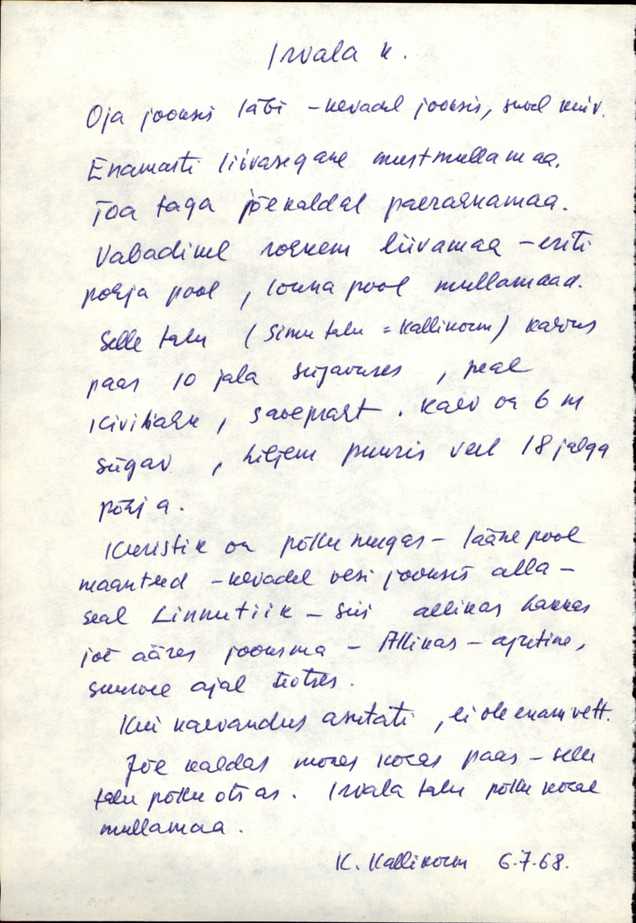 Irvala k.
Oja jooksis läbi – kevadel jooksis, suvel kuiv.
Enamasti liivasegane mustmullamaa.
Toa taga jõekaldal paeraehamaa.
Vabadikel rohkem liivamaa – eriti
põhja pool, lõuna pool mullamaad.
Selle talu (Simu talu = Kallikorm) kaevus
paas 10 jala sügavuses, peal
kivihaku, savepragt. Kaev on 6 m
sügav, hiljem puuris veel 18 jalga
põhja.
Kuristik on põllu nurgas – lääne pool
maanteed – kevadel vesi jooksis alla –
seal Linnutiik – siis allikas hakkas
jõe ääres jooksma – Allikas – ajutine,
suurvee ajal töötas.
Kui kaevandus asutati, ei ole enam vett.
Jõe kaldas mõnes kohas paas – selle
talu põllu otsas. Irvala talu põllu kohal
mullamaa.
K. Kallikorm 6.7.68.